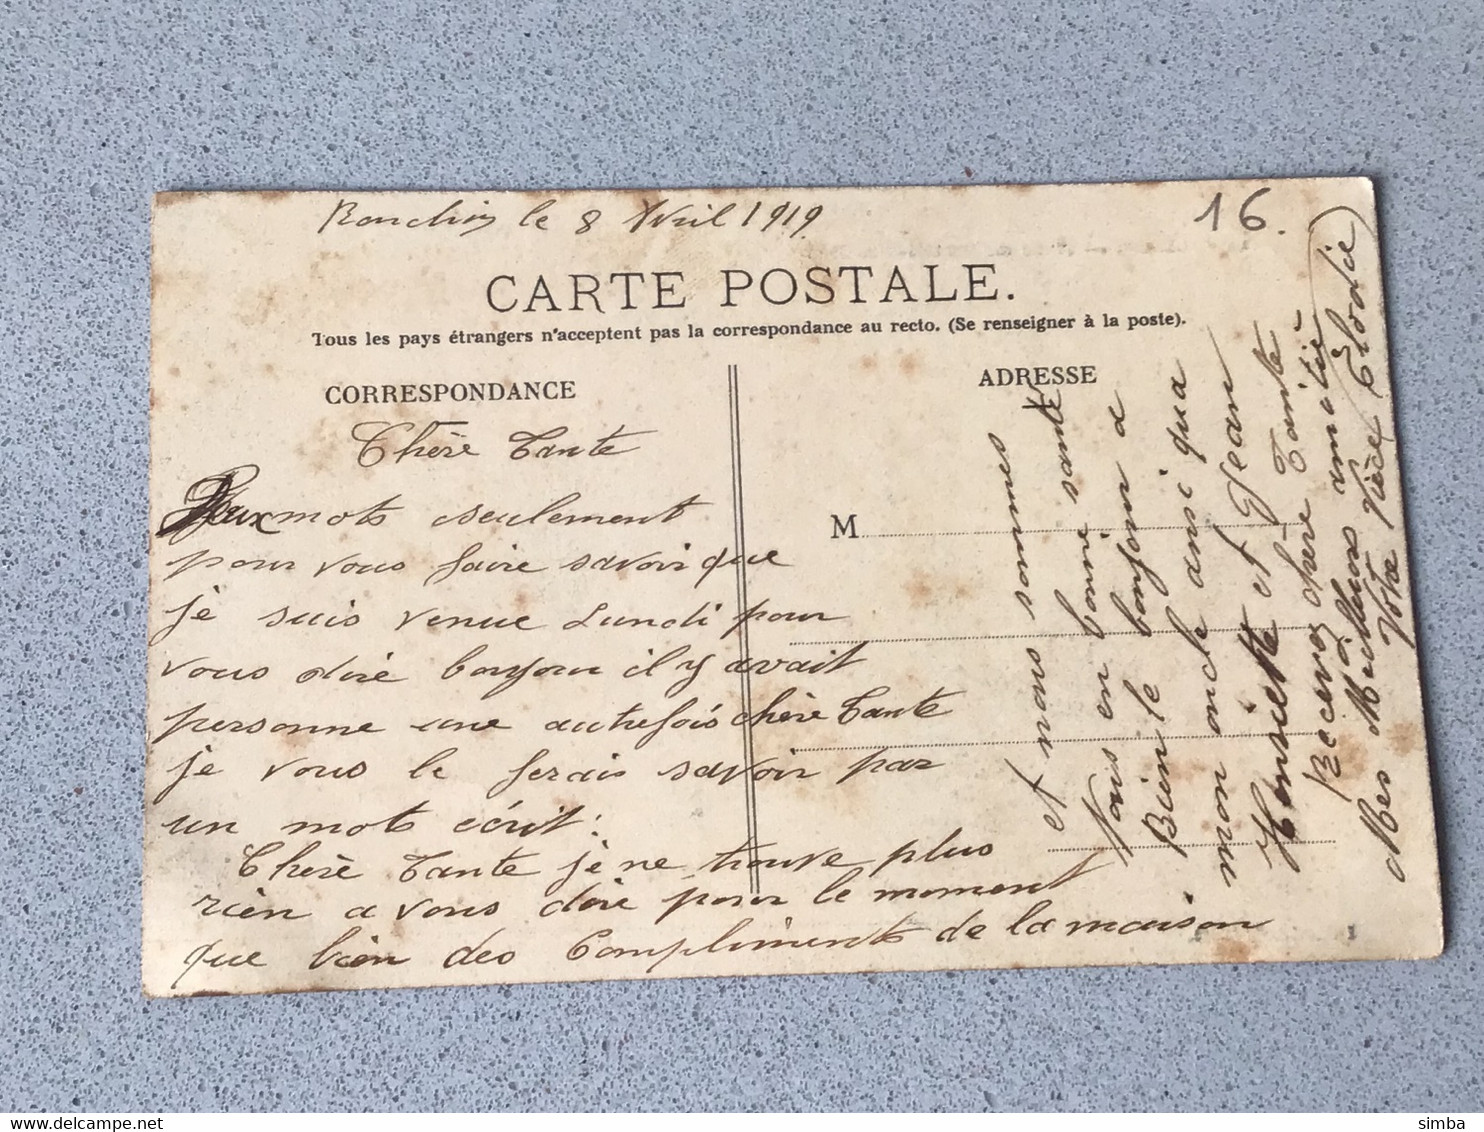 Ronchin le 8 Avril 1919
16.
CARTE POSTALE.
Tous les pays étrangers n'acceptent pas la correspondance au recto. (Se renseigner à la poste).
CORRESPONDANCE
ADRESSE
M
Chère Tante
Deux mots seulement
pour vous faire savoir que
je suis venue Lundi pour
vous dire bonjour il y avait
personne une autrefois chère Tante
je vous le ferais savoir par
un mots écrit.
Chère Tante je ne trouve plus
rien a vous dire pour le moment
que bien des Compliments de la maison
et nous sommes
Tous en bonne santé
Bien le bonjour a
mon oncle ansi qua
Henriette et Jean
Recevez chère Tante
Mes Meilleurs amitié
Votre Nièce Elodie
delcampe.net
simba